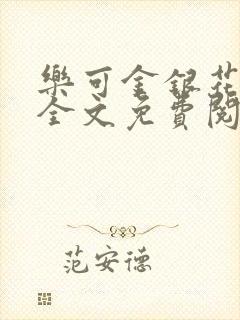 樂可金銀花
全文免費閱
范安德